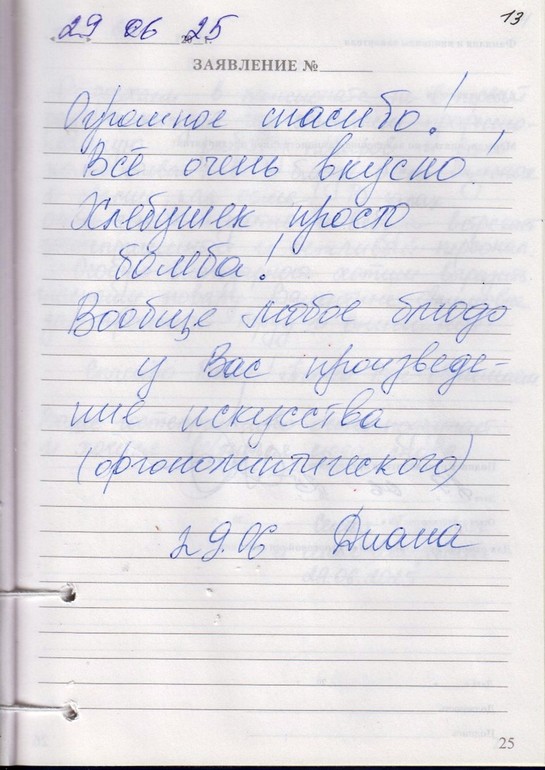 29 06 25
13
ЗАЯВЛЕНИЕ №
Огромное спасибо!
Всё очень вкусно!
Хлебушек просто
бомба!
Вообще любое блюдо
у Вас произведе-
ние искусства
29.06 Диана
25